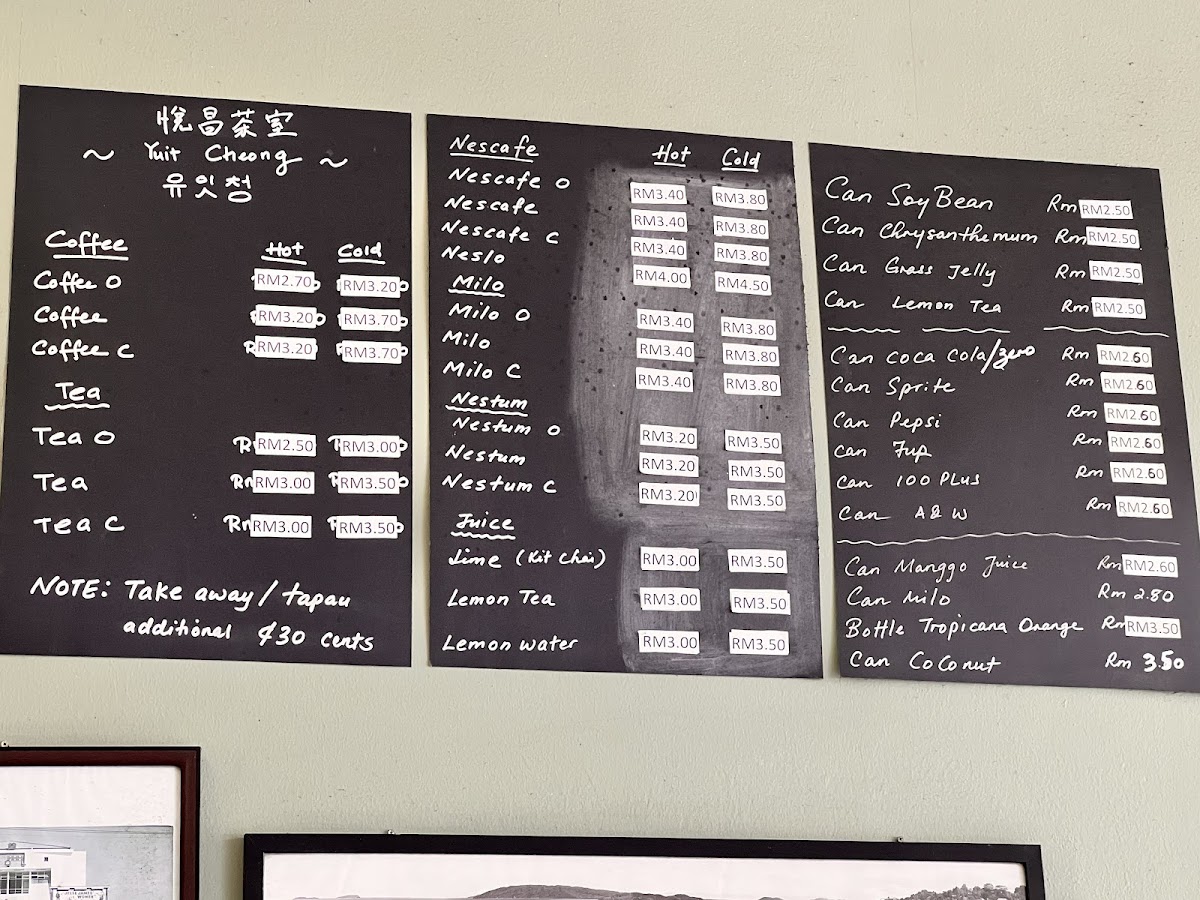 悅昌茶室
~ Yuit Cheong ~
유잇청
Coffee Hot Cold
Coffee O RM2.70 RM3.20
Coffee RM3.20 RM3.70
Coffee C RM3.20 RM3.70
Tea
Tea O RM2.50 RM3.00
Tea RM3.00 RM3.50
Tea C RM3.00 RM3.50
NOTE: Take away/tapau
additional ¢30 cents
Nescafe Hot Cold
Nescafe O RM3.40 RM3.80
Nescafe RM3.40 RM3.80
Nescafe C RM3.40 RM3.80
Neslo RM4.00 RM4.50
Milo
Milo O RM3.40 RM3.80
Milo RM3.40 RM3.80
Milo C RM3.40 RM3.80
Nestum
Nestum O RM3.20 RM3.50
Nestum RM3.20 RM3.50
Nestum C RM3.20 RM3.50
Juice
Lime (Kit Chai) RM3.00 RM3.50
Lemon Tea RM3.00 RM3.50
Lemon water RM3.00 RM3.50
Can Soy Bean Rm RM2.50
Can Chrysanthemum Rm RM2.50
Can Grass Jelly Rm RM2.50
Can Lemon Tea Rm RM2.50
Can coca cola/zero Rm RM2.60
Can Sprite Rm RM2.60
Can Pepsi Rm RM2.60
Can 7up Rm RM2.60
Can 100 PLus Rm RM2.60
Can A&W Rm RM2.60
Can Manggo Juice Rm RM2.60
Can Milo Rm 2.80
Bottle Tropicana Orange Rm RM3.50
Can CoConut Rm 3.50